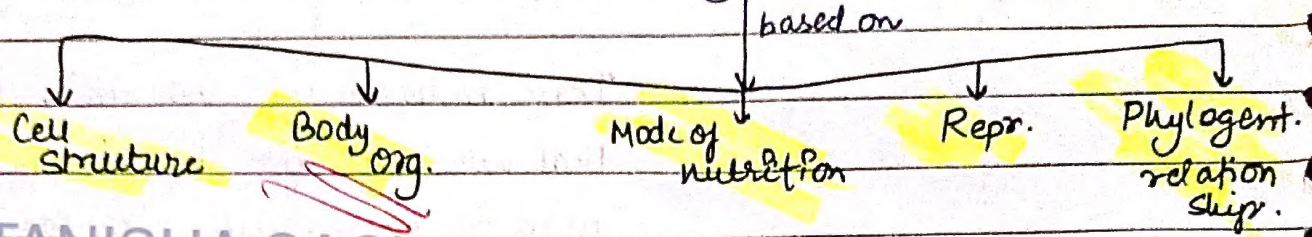 based on
Cell structure
Body org.
Mode of nutrition
Repr.
Phylogent. relation ship.